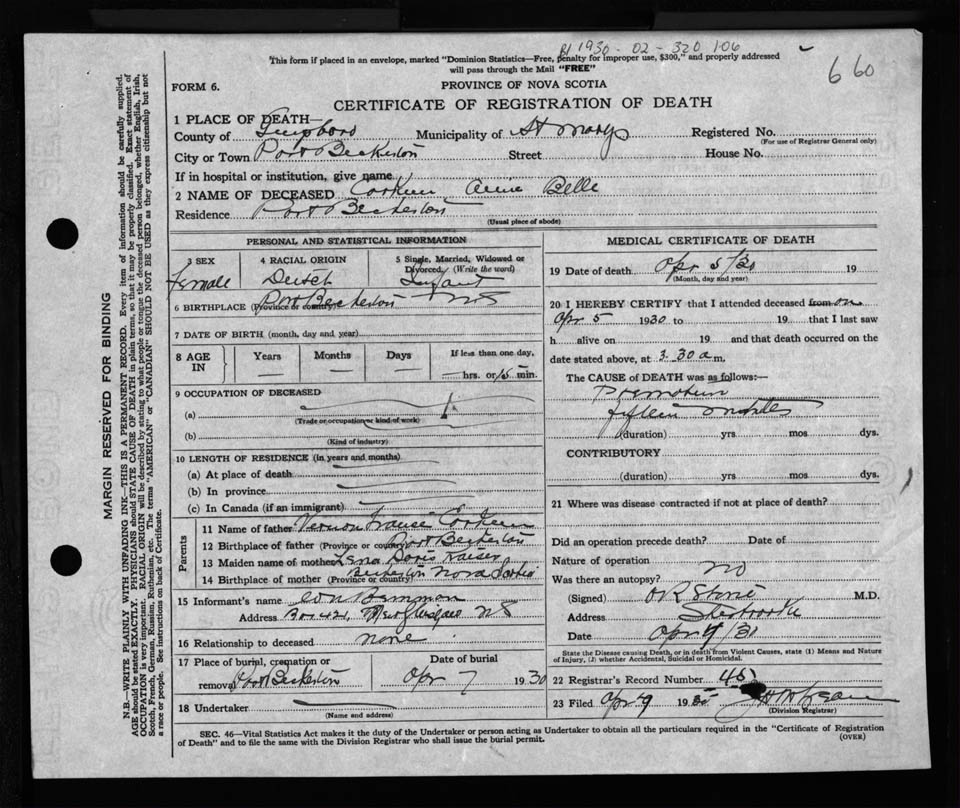 1930-02-320106
This form if placed in an envelope, marked "Dominion Statistics—Free, penalty for improper use, $300," and properly addressed
will pass through the Mail "FREE"
660
FORM 6.
PROVINCE OF NOVA SCOTIA
CERTIFICATE OF REGISTRATION OF DEATH
1 PLACE OF DEATH—
County of Municipality of St Marys Registered No.
(For use of Registrar General only)
City or Town Port Beckerton Street House No.
If in hospital or institution, give name
2 NAME OF DECEASED Corkum Annie Belle
Residence Port Beckerton
(Usual place of abode)
PERSONAL AND STATISTICAL INFORMATION
3 SEX 4 RACIAL ORIGIN 5 Single, Married, Widowed or Divorced, (Write the word)
female Dutch Infant
6 BIRTHPLACE (Province or country) Port Beckerton NS
7 DATE OF BIRTH (month, day and year)
8 AGE IN Years Months Days If less than one day,
— — — hrs. or 15 min.
9 OCCUPATION OF DECEASED
(a)
(Trade or occupation or kind of work)
(b)
(Kind of industry)
10 LENGTH OF RESIDENCE (in years and months)
(a) At place of death
(b) In province
(c) In Canada (if an immigrant)
Parents
11 Name of father Vernon Corkum
12 Birthplace of father (Province or country) Port Beckerton
13 Maiden name of mother Lena Doris Kaiser
14 Birthplace of mother (Province or country) Nova Scotia
15 Informant's name
Address New Glasgow NS
16 Relationship to deceased none
17 Place of burial, cremation or removal Port Beckerton
Date of burial
Apr 7 1930
18 Undertaker
(Name and address)
MEDICAL CERTIFICATE OF DEATH
19 Date of death Apr 5/30 19
(Month, day and year)
20 I HEREBY CERTIFY that I attended deceased from on
Apr 5 1930 to 19 that I last saw
h alive on 19 and that death occurred on the
date stated above, at 3.30 a m.
The CAUSE of DEATH was as follows:—
Premature
fifteen minutes
(duration) yrs mos dys.
CONTRIBUTORY
(duration) yrs mos dys.
21 Where was disease contracted if not at place of death?
Did an operation precede death? Date of
Nature of operation
Was there an autopsy? no
(Signed) M.D.
Address Sherbrooke
Date Apr 9/30
State the Disease causing Death, or in death from Violent Causes, state (1) Means and Nature
of Injury, (2) whether Accidental, Suicidal or Homicidal.
22 Registrar's Record Number 45
23 Filed Apr 9 1930
(Division Registrar)
SEC. 46—Vital Statistics Act makes it the duty of the Undertaker or person acting as Undertaker to obtain all the particulars required in the "Certificate of Registration
of Death" and to file the same with the Division Registrar who shall issue the burial permit.
(OVER)
MARGIN RESERVED FOR BINDING
N.B.—WRITE PLAINLY WITH UNFADING INK—THIS IS A PERMANENT RECORD. Every item of information should be carefully supplied.
AGE should be stated EXACTLY. PHYSICIANS should STATE CAUSE OF DEATH in plain terms, so that it may be properly classified. Exact statement of
OCCUPATION is very important. RACIAL ORIGIN will be described by stating to what people or tongue the deceased person belonged, whether English, Irish,
Scotch, French, German, Russian, Ruthenian, etc. The terms "AMERICAN" or "CANADIAN" SHOULD NOT BE USED as they express citizenship but not
a race or people. See instructions on back of Certificate.